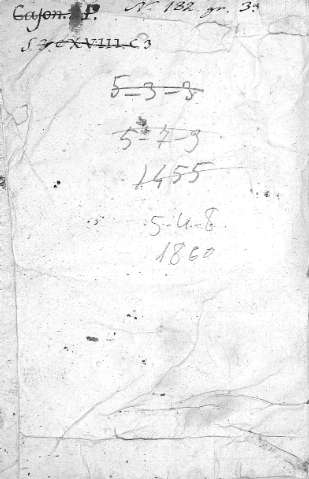 Cajon.
N. 182 gr. 33
XVIII. C3
5-3-3
5-7-3
1455
5-4-8
1860